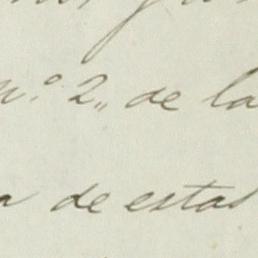 Nº 2,, de la
a de estas